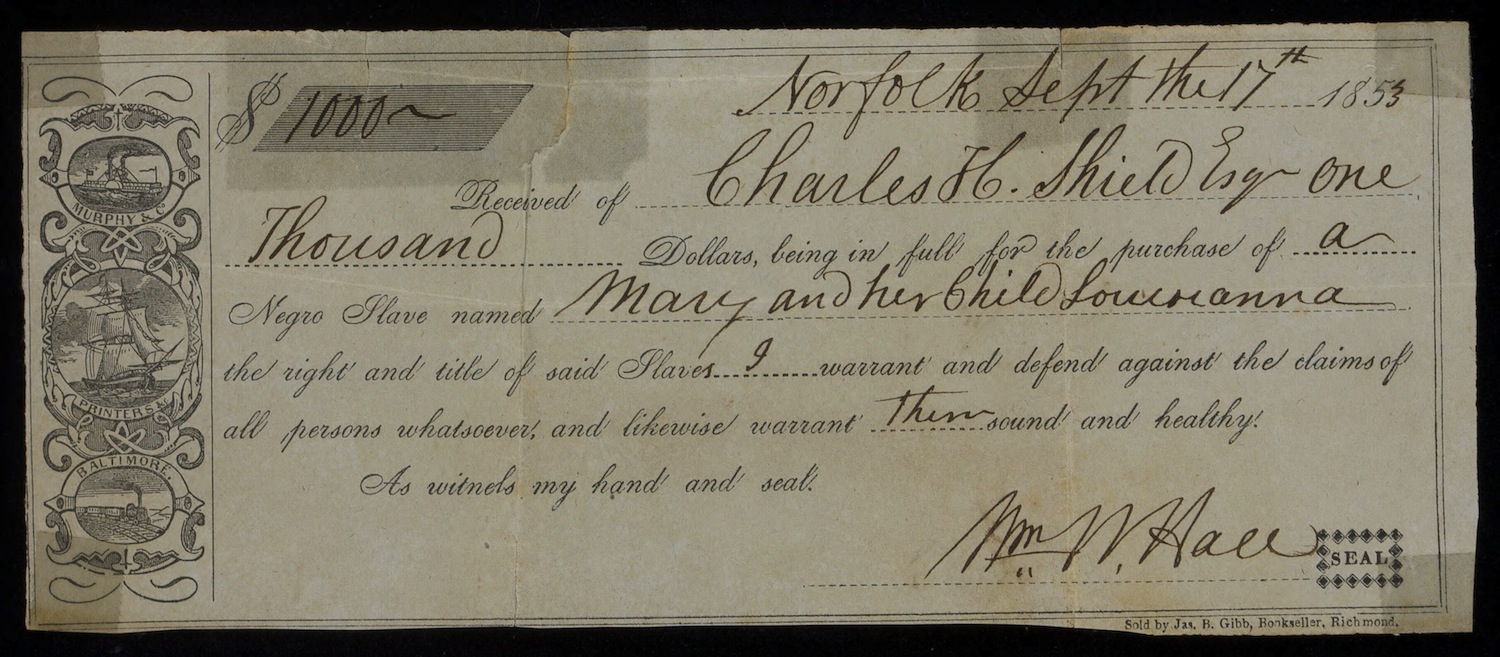 $ 1000~ Norfolk Sept the 17th 1853
Received of Charles H. Shield Esqr One
Thousand Dollars, being in full for the purchase of a
Negro Slave named Mary and her Child Louisianna
the right and title of said Slaves I warrant and defend against the claims of
all persons whatsoever, and likewise warrant them sound and healthy.
As witness my hand and seal.
Wm W. Hall SEAL
Sold by Jas. B. Gibb, Bookseller, Richmond.
MURPHY & Co
PRINTERS &c
BALTIMORE.